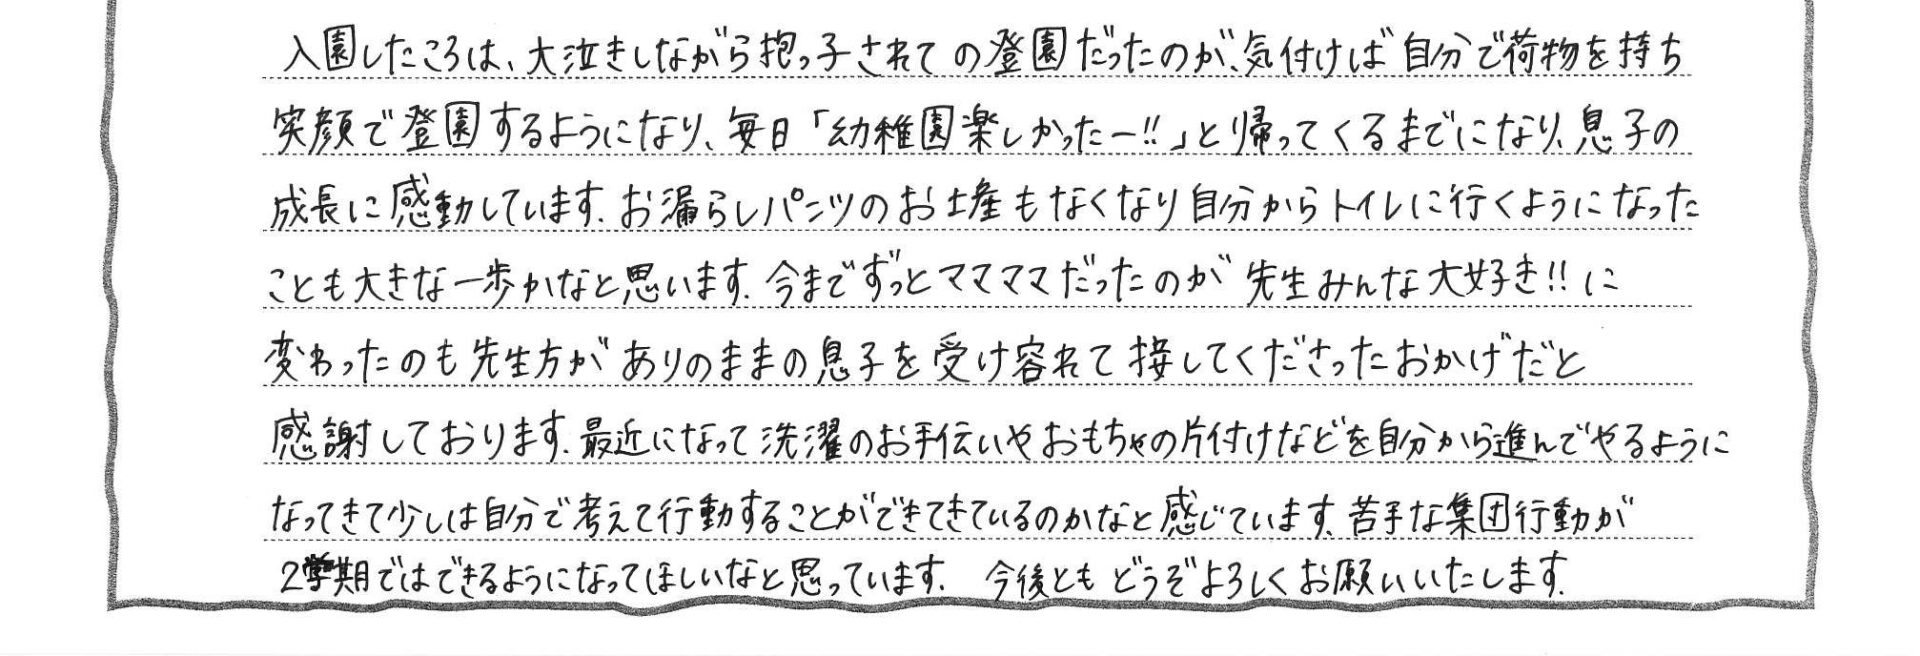 入園したころは、大泣きしながら抱っ子されての登園だったのが、気付けば自分で荷物を持ち
笑顔で登園するようになり、毎日「幼稚園楽しかったー!!」と帰ってくるまでになり、息子の
成長に感動しています。お漏らしパンツのお土産もなくなり自分からトイレに行くようになった
ことも大きな一歩かなと思います。今までずっとママママだったのが先生みんな大好き!!に
変わったのも先生方がありのままの息子を受け容れて接してくださったおかげだと
感謝しております。最近になって洗濯のお手伝いやおもちゃの片付けなどを自分から進んでやるように
なってきて少しは自分で考えて行動することができてきているのかなと感じています。苦手な集団行動が
2学期ではできるようになってほしいなと思っています。 今後ともどうぞよろしくお願いいたします。